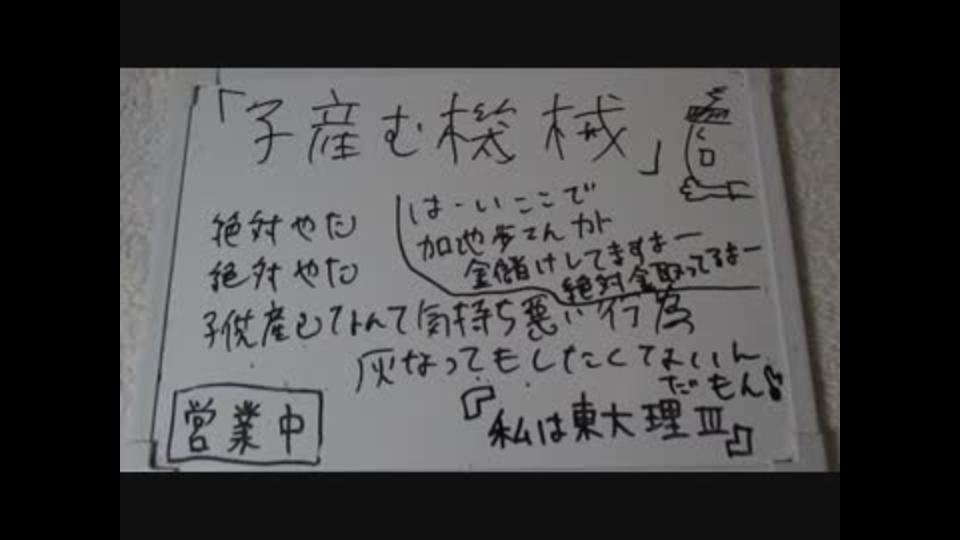 「子産む機械」
絶対やだ
絶対やだ
はーいここで
金儲けしてますよー
絶対金取ってるよー
子供産むなんて気持ち悪い行為
灰なってもしたくてないん
だもん
営業中
『私は東大理Ⅲ』